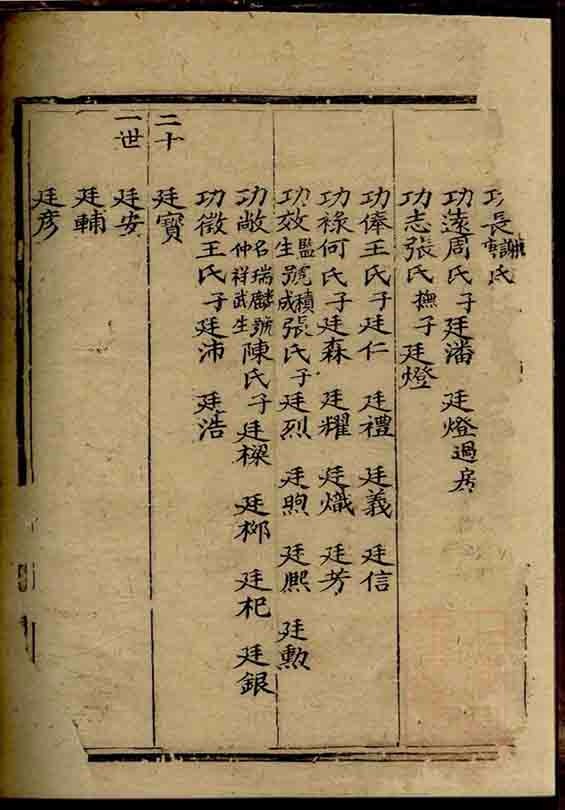 功長謝氏
功遠周氏子廷潘 廷燈過房
功志張氏撫子廷燈
功俸王氏子廷仁 廷禮 廷義 廷信
功祿何氏子廷森 廷耀 廷熾 廷芳
功效監生號積成張氏子廷烈 廷煦 廷熈 廷勲
功敞名瑞麟號仲祥武生陳氏子廷樑 廷栁 廷杞 廷銀
功徵王氏子廷沛 廷浩
二十一世
廷寶
廷安
廷輔
廷彦